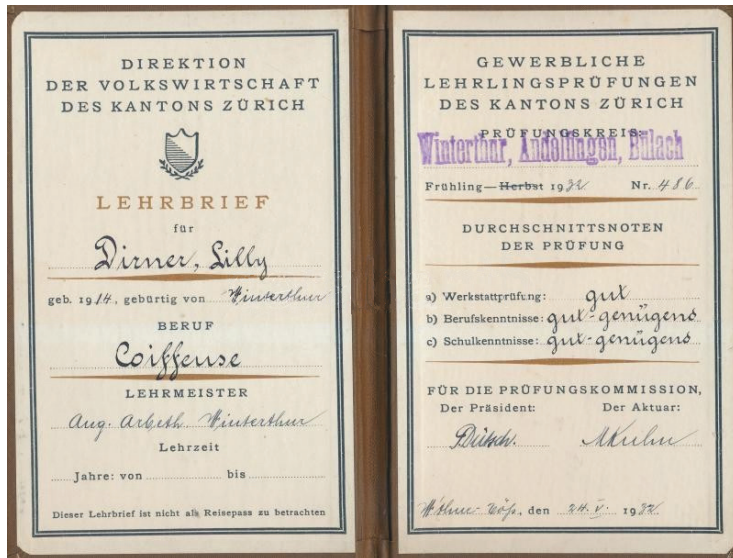 DIREKTION
DER VOLKSWIRTSCHAFT
DES KANTONS ZÜRICH
LEHRBRIEF
für
Dirner, Lilly
geb. 1914, gebürtig von Winterthur
BERUF
Coiffeuse
LEHRMEISTER
Aug. Arbeth Winterthur
Lehrzeit
Jahre: von bis
Dieser Lehrbrief ist nicht als Reisepass zu betrachten
GEWERBLICHE
LEHRLINGSPRÜFUNGEN
DES KANTONS ZÜRICH
PRÜFUNGSKREIS:
Winterthur, Andelfingen, Bülach
Frühling—Herbst 1932 Nr. 486
DURCHSCHNITTSNOTEN
DER PRÜFUNG
a) Werkstattprüfung: gut
b) Berufskenntnisse: gut-genügend
c) Schulkenntnisse: gut-genügend
FÜR DIE PRÜFUNGSKOMMISSION,
Der Präsident: Der Aktuar:
, den 24. V. 1932